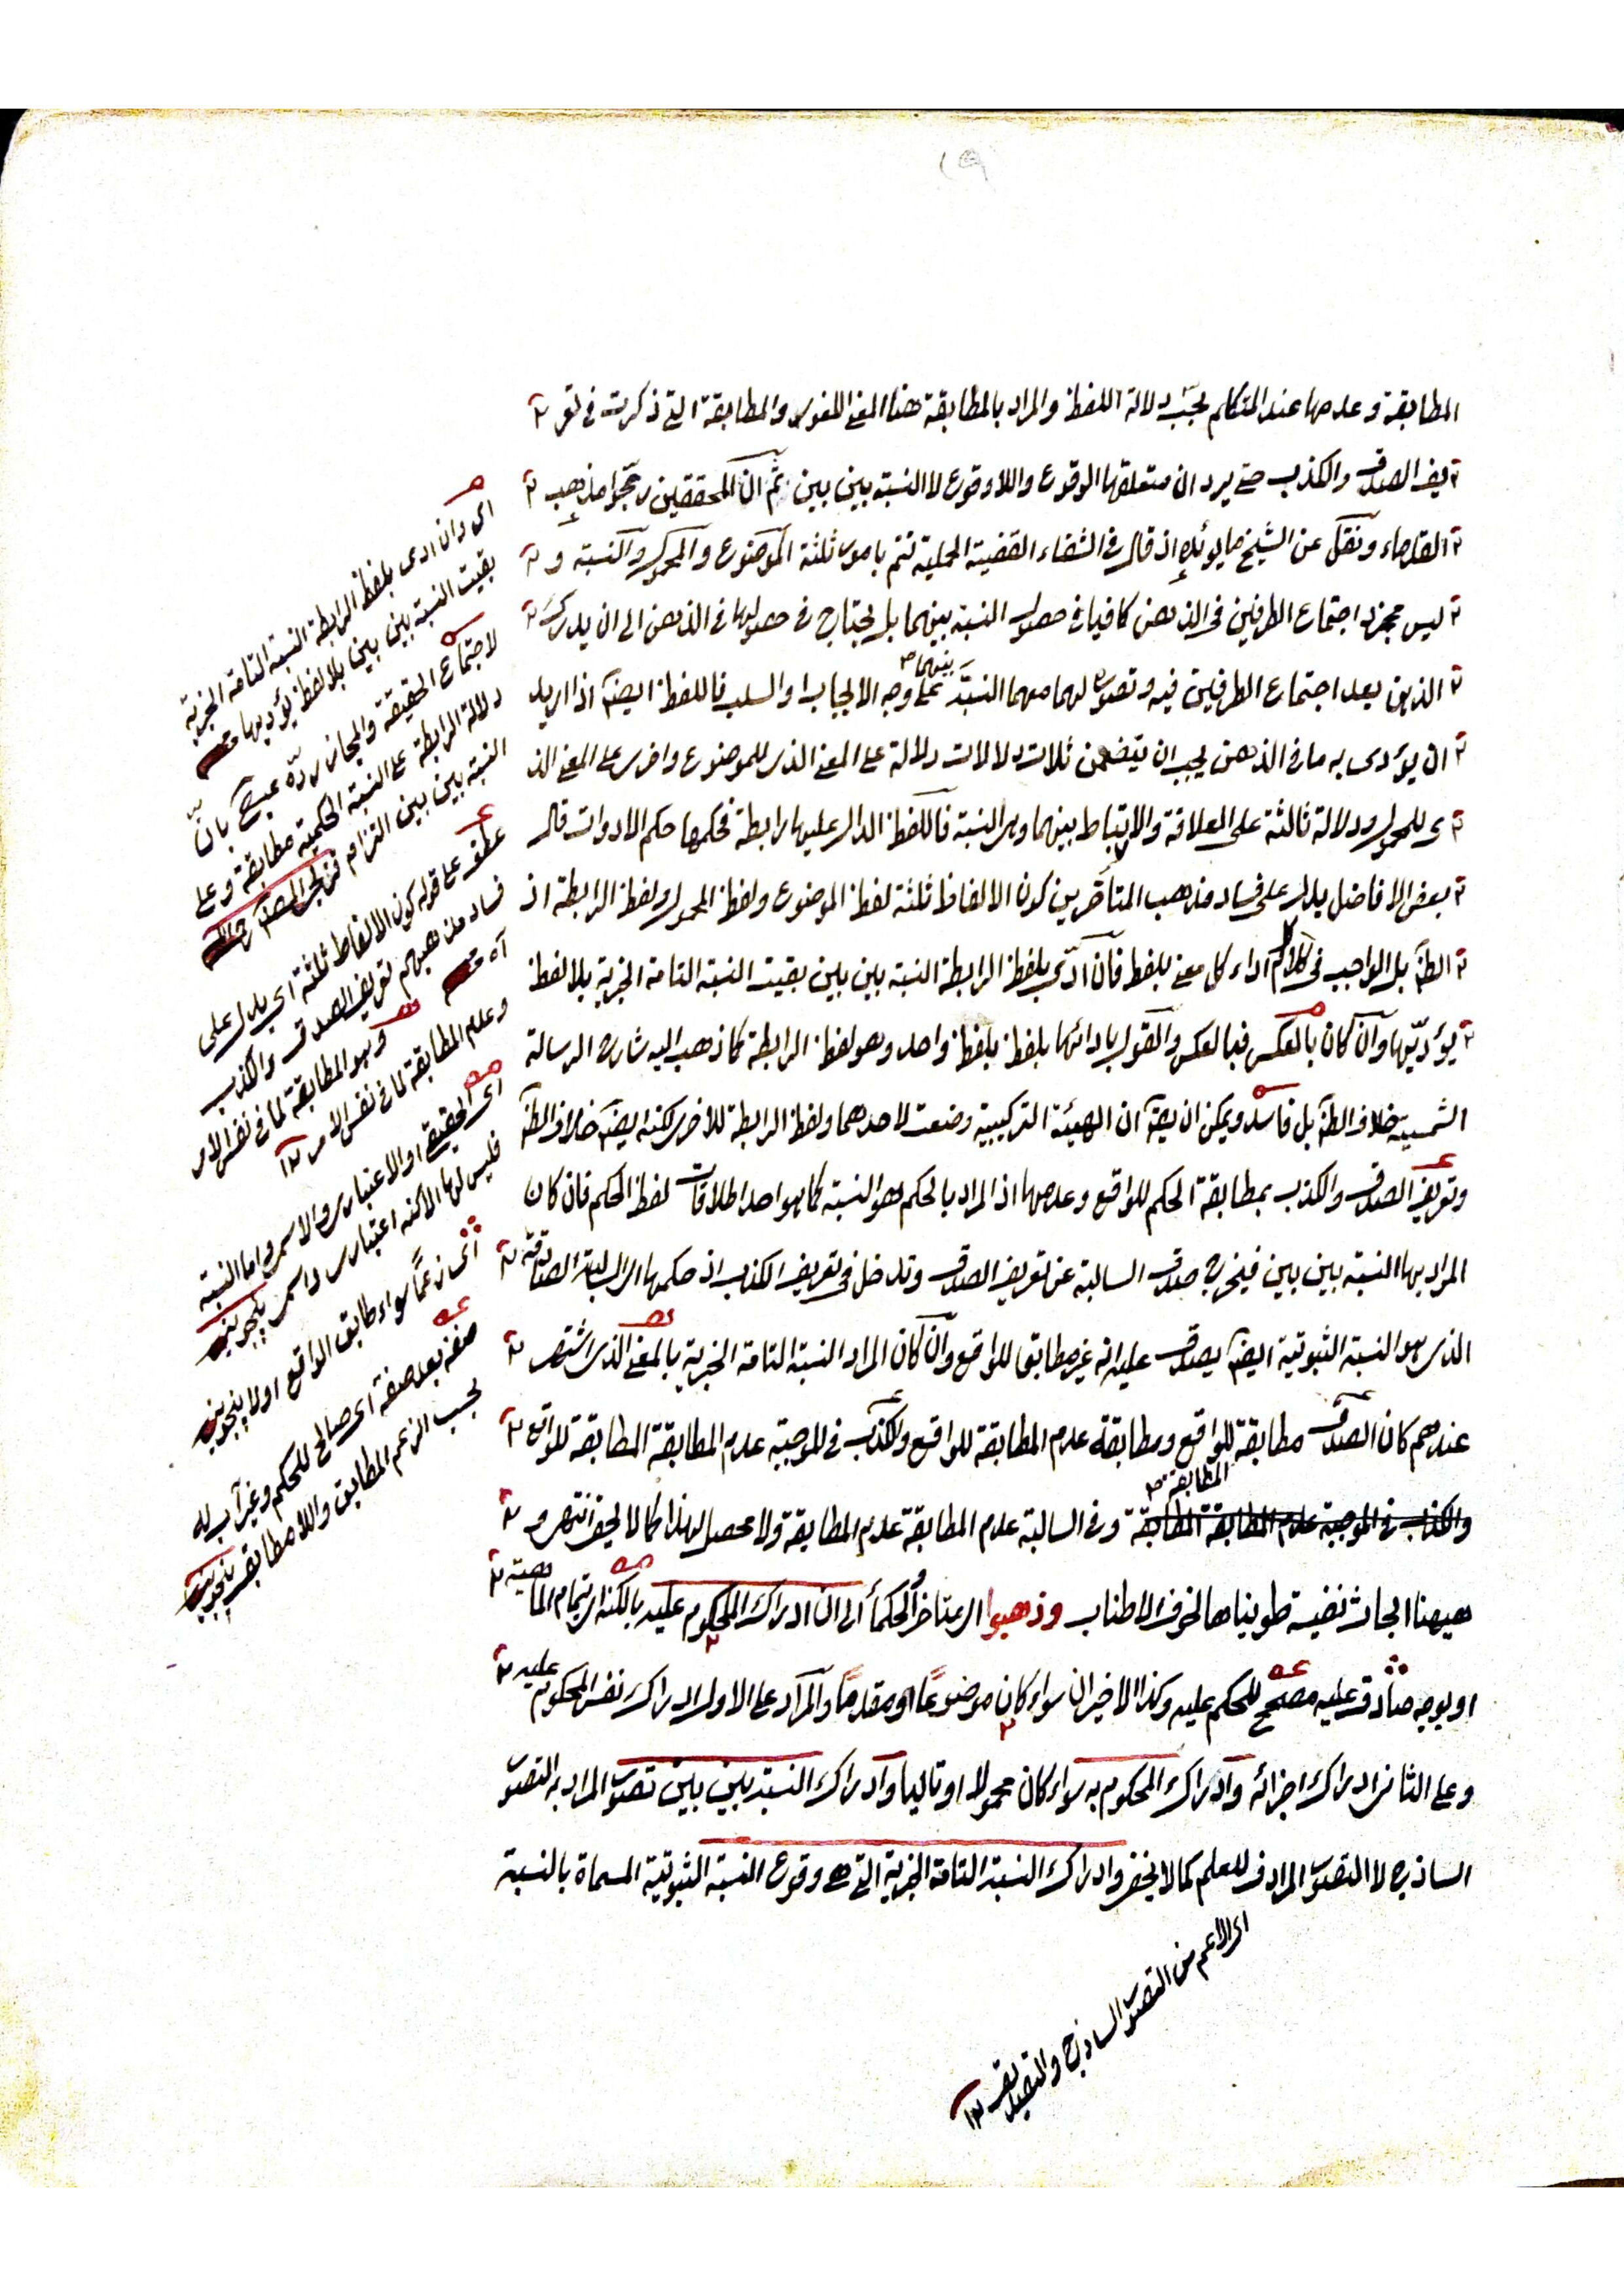 المطابقة وعدمها عند المتكلم بحسب دلالة اللفظ والمراد بالمطابقة هنا المعنى اللغوى والمطابقة التى ذكرت فى تعر
يف الصدق والكذب حتى يرد ان متعلقها الوقوع واللاوقوع لا النسبة بين بين ثم ان المحققين رجحوا مذهب
القدماء ونقل عن الشيخ ما يؤيده اذ قال فى الشفاء القضية الحملية تتم بامور ثلثة الموضوع والمحمول والنسبة و
ليس مجرد اجتماع الطرفين فى الذهن كافيا فى حصول النسبة بينهما بل يحتاج فى حصولها فى الذهن الى ان يدرك
الذهن بعد اجتماع الطرفين فيه وتصوره لهما معهما النسبة بينهما على وجه الايجاب او السلب فاللفظ ايضا اذا اريد
ان يؤدى به ما فى الذهن يجب ان يتضمن ثلاث دلالات دلالة على المعنى الذى للموضوع واخرى على المعنى الذ
ى للمحمول ودلالة ثالثة على العلاقة والارتباط بينهما وهى النسبة فاللفظ الدال عليها رابطة فحكمها حكم الادوات قال
بعض الافاضل يدل على فساد مذهب المتأخرين كون الالفاظ ثلثة لفظ الموضوع ولفظ المحمول ولفظ الرابطة اذ
الظ بل الواجب فى الكلام اداء كل معنى بلفظ فان ادى بلفظ الرابطة النسبة بين بين بقيت النسبة التامة الخبرية بلا لفظ
يؤديها وان كان بالعكس فبالعكس والقول بادائها بلفظ بلفظ واحد وهو لفظ الرابطة كما ذهب اليه شارح الرسالة
الشمسية خلاف الظ بل فاسد ويمكن ان يق ان الهيئة التركيبية وضعت لاحدهما ولفظ الرابطة للاخرى لكنه ايضا خلاف الظ
وتعريف الصدق والكذب بمطابقة الحكم للواقع وعدمها اذ المراد بالحكم هو النسبة كما هو احد اطلاقات لفظ الحكم فان كان
المراد بها النسبة بين بين فيخرج صدق السالبة عن تعريف الصدق وتدخل فى تعريف الكذب اذ حكمها اى السالبة الصادقة
الذى هو النسبة الثبوتية ايضا يصدق عليه انه غير مطابق للواقع وان كان المراد النسبة التامة الخبرية بالمعنى الذى اشتهر
عندهم كان الصدق مطابقة للواقع ومطابقة عدم المطابقة للواقع والكذب فى الموجبة عدم المطابقة المطابقة للواقع
والكذب فى الموجبة عدم المطابقة المطابقة المطابقة وفى السالبة عدم المطابقة عدم المطابقة ولا محصل لهذا كما لا يخفى انتهى و
ههنا ابحاث نفيسة طويناها لخوف الاطناب وذهبوا اى متاخروا الحكما الى ان ادراك المحكوم عليه بالكنه اى بتمام الماهية
او بوجه صادق عليه مصحح للحكم عليه وكذا الاخيران سواء كان موضوعا او مقدما والمراد على الاول ادراك نفس المحكوم عليه
وعلى الثانى ادراك اجزائه وادراك المحكوم به سواء كان محمولا او تاليا وادراك النسبة بين بين تصور المراد به التصور
الساذج لا التصور المرادف للعلم كما لا يخفى وادراك النسبة التامة الخبرية التى هى وقوع النسبة الثبوتية المسماة بالنسبة
اى الاعم من التصور الساذج والتصديق ١٢
اى وان ادى بلفظ الرابطة النسبة التامة الخبرية
بقيت النسبة بين بين بلا لفظ يؤديها
لاجتماع الحقيقة والمجاز رده عبد بان
دلالة الرابطة على النسبة الحكمية مطابقة وعلى
النسبة بين بين التزام
عطف على قوله كون الالفاظ ثلثة اى يدل على
فساد مذهبهم تعريف الصدق والكذب
آه
وهو المطابقة لما فى نفس الامر
وعدم المطابقة لما فى نفس الامر ١٢
اى الحقيقى او الاعتبارى والاسمى واما النسبة
فليس لها الا كنه اعتبارى واسمى
اى زعما سواء طابق الواقع او لا
صفة بعد صفة اى صالح للحكم وغير آب له
بحسب الزعم المطابق واللامطابق